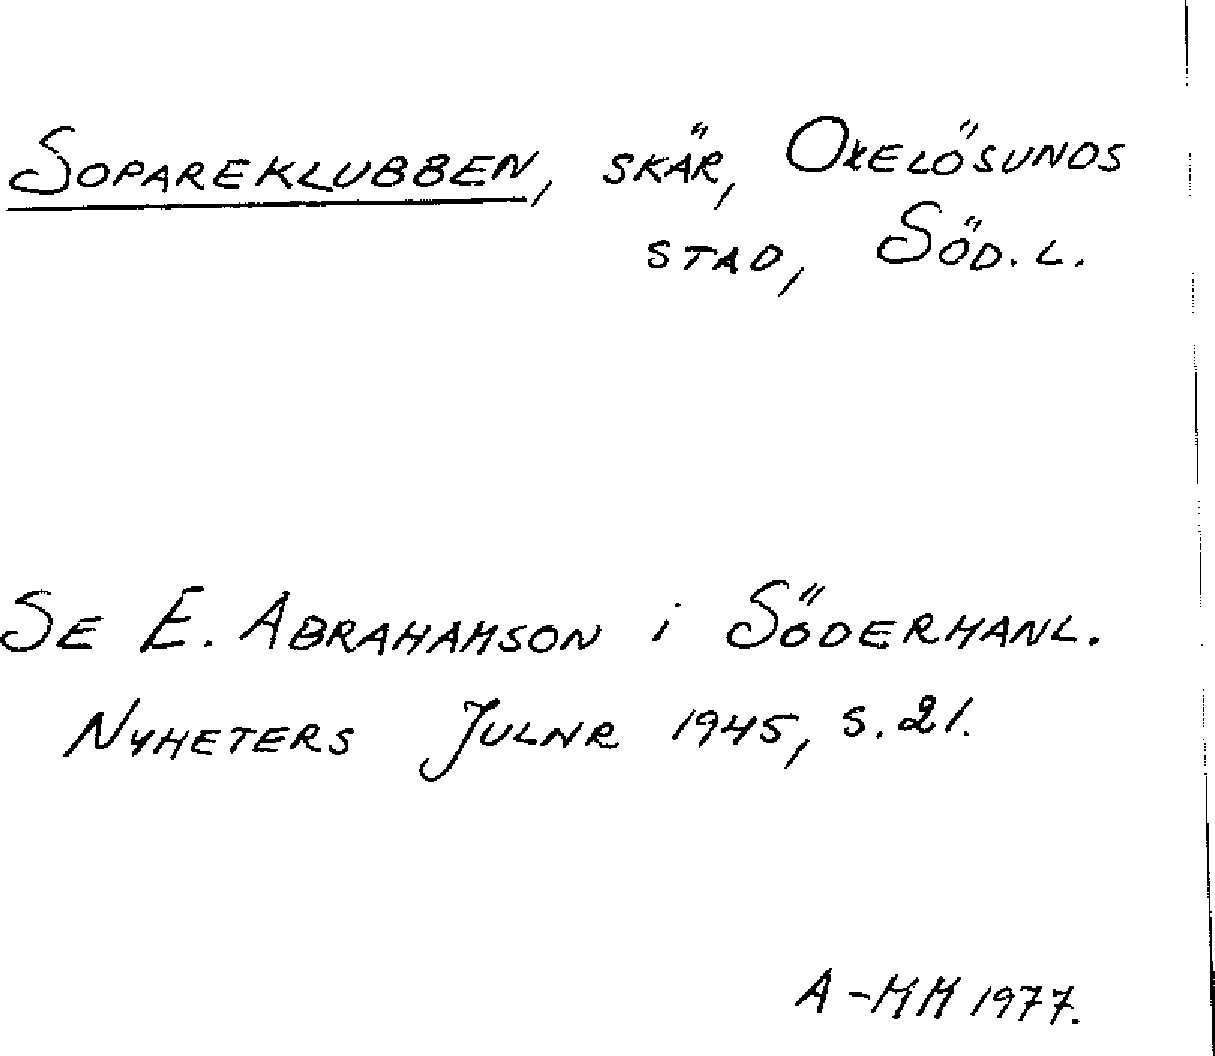 SOPAREKLUBBEN, SKÄR, OXELÖSUNDS
STAD, SÖD. L.
SE E. ABRAHAMSON i SÖDERMANL.
NYHETERS JULNR 1945, S. 21.
A-MM 1977.